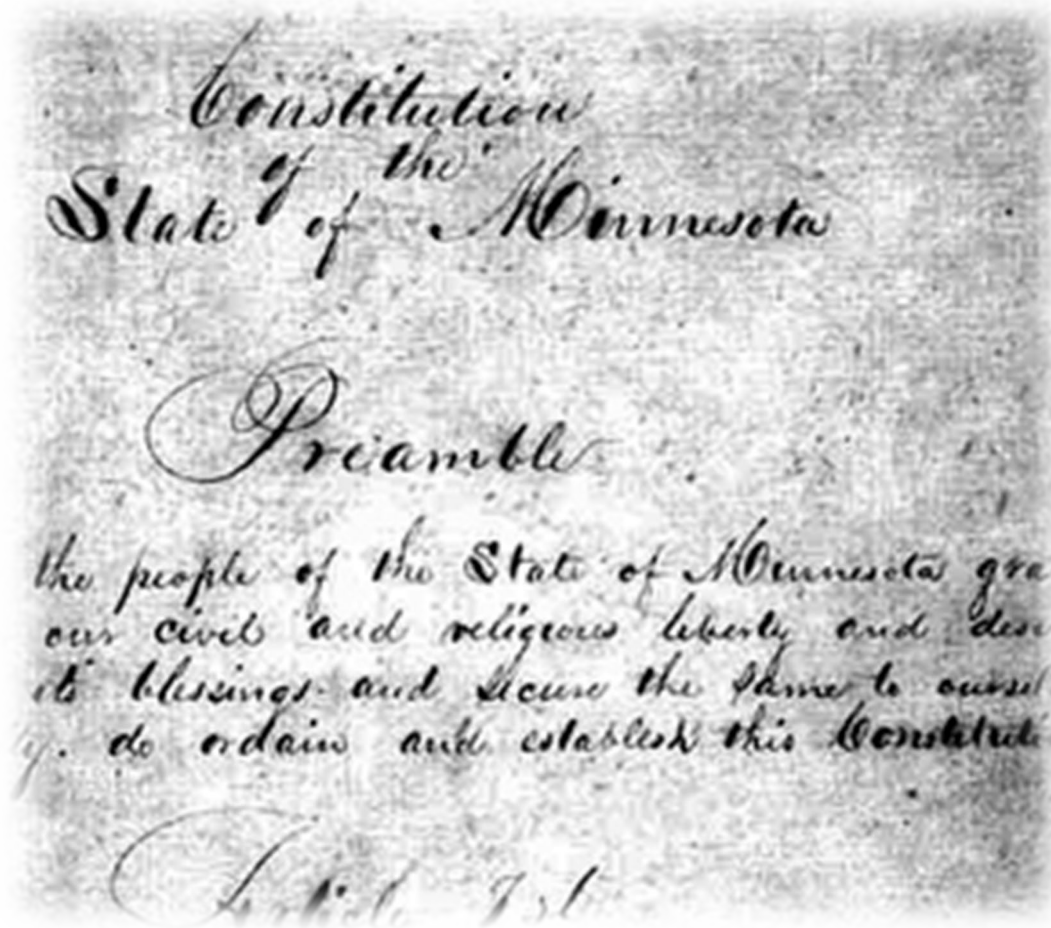 Constitution
of the
State of Minnesota
Preamble
the people of the State of Minnesota gra
our civil and religious liberty and desi
its blessings and secure the same to oursel
y. do ordain and establish this Constituti
Article 1st